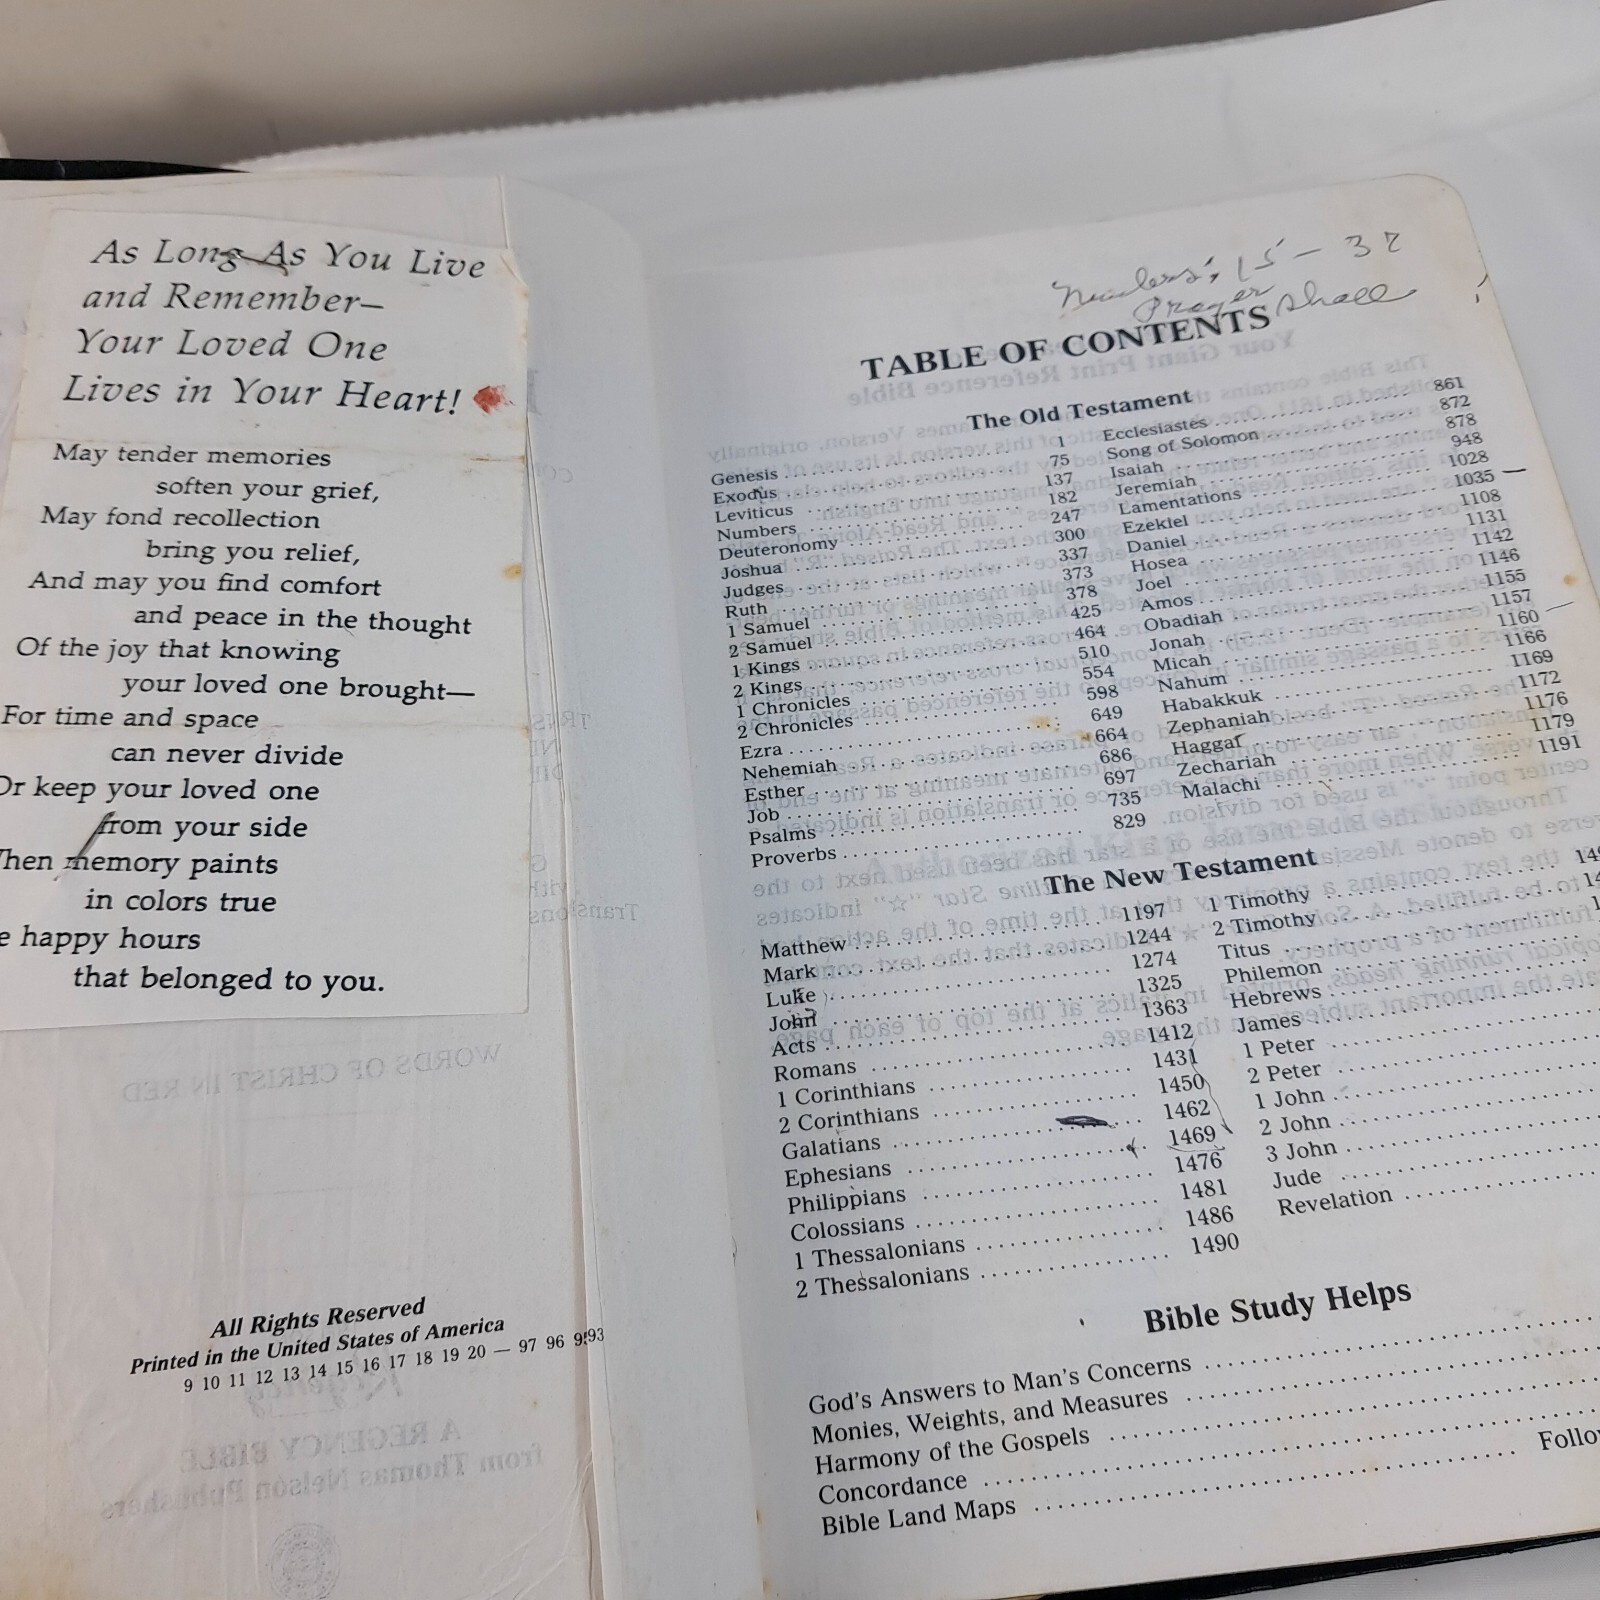 As Long As You Live
and Remember—
Your Loved One
Lives in Your Heart!
May tender memories
soften your grief,
May fond recollection
bring you relief,
And may you find comfort
and peace in the thought
Of the joy that knowing
your loved one brought—
For time and space
can never divide
Or keep your loved one
from your side
When memory paints
in colors true
happy hours
that belonged to you.
WORDS OF CHRIST IN RED
All Rights Reserved
Printed in the United States of America
9 10 11 12 13 14 15 16 17 18 19 20 — 97 96 95 93
A REGENCY BIBLE
from Thomas Nelson Publishers
15 - 37
Prayer Shall
TABLE OF CONTENTS
Your Giant Print Reference Bible
The Old Testament
Genesis 1
Exodus 75
Leviticus 137
Numbers 182
Deuteronomy 247
Joshua 300
Judges 337
Ruth 373
1 Samuel 378
2 Samuel 425
1 Kings 464
2 Kings 510
1 Chronicles 554
2 Chronicles 598
Ezra 649
Nehemiah 664
Esther 686
Job 697
Psalms 735
Proverbs 829
Ecclesiastes 861
Song of Solomon 872
Isaiah 878
Jeremiah 948
Lamentations 1028
Ezekiel 1035
Daniel 1108
Hosea 1131
Joel 1142
Amos 1146
Obadiah 1155
Jonah 1157
Micah 1160
Nahum 1166
Habakkuk 1169
Zephaniah 1172
Haggar 1176
Zechariah 1179
Malachi 1191
The New Testament
Matthew 1197
Mark 1244
Luke 1274
John 1325
Acts 1363
Romans 1412
1 Corinthians 1431
2 Corinthians 1450
Galatians 1462
Ephesians 1469
Philippians 1476
Colossians 1481
1 Thessalonians 1486
2 Thessalonians 1490
1 Timothy
2 Timothy
Titus
Philemon
Hebrews
James
1 Peter
2 Peter
1 John
2 John
3 John
Jude
Revelation
Bible Study Helps
God's Answers to Man's Concerns
Monies, Weights, and Measures
Harmony of the Gospels
Concordance
Bible Land Maps Follo